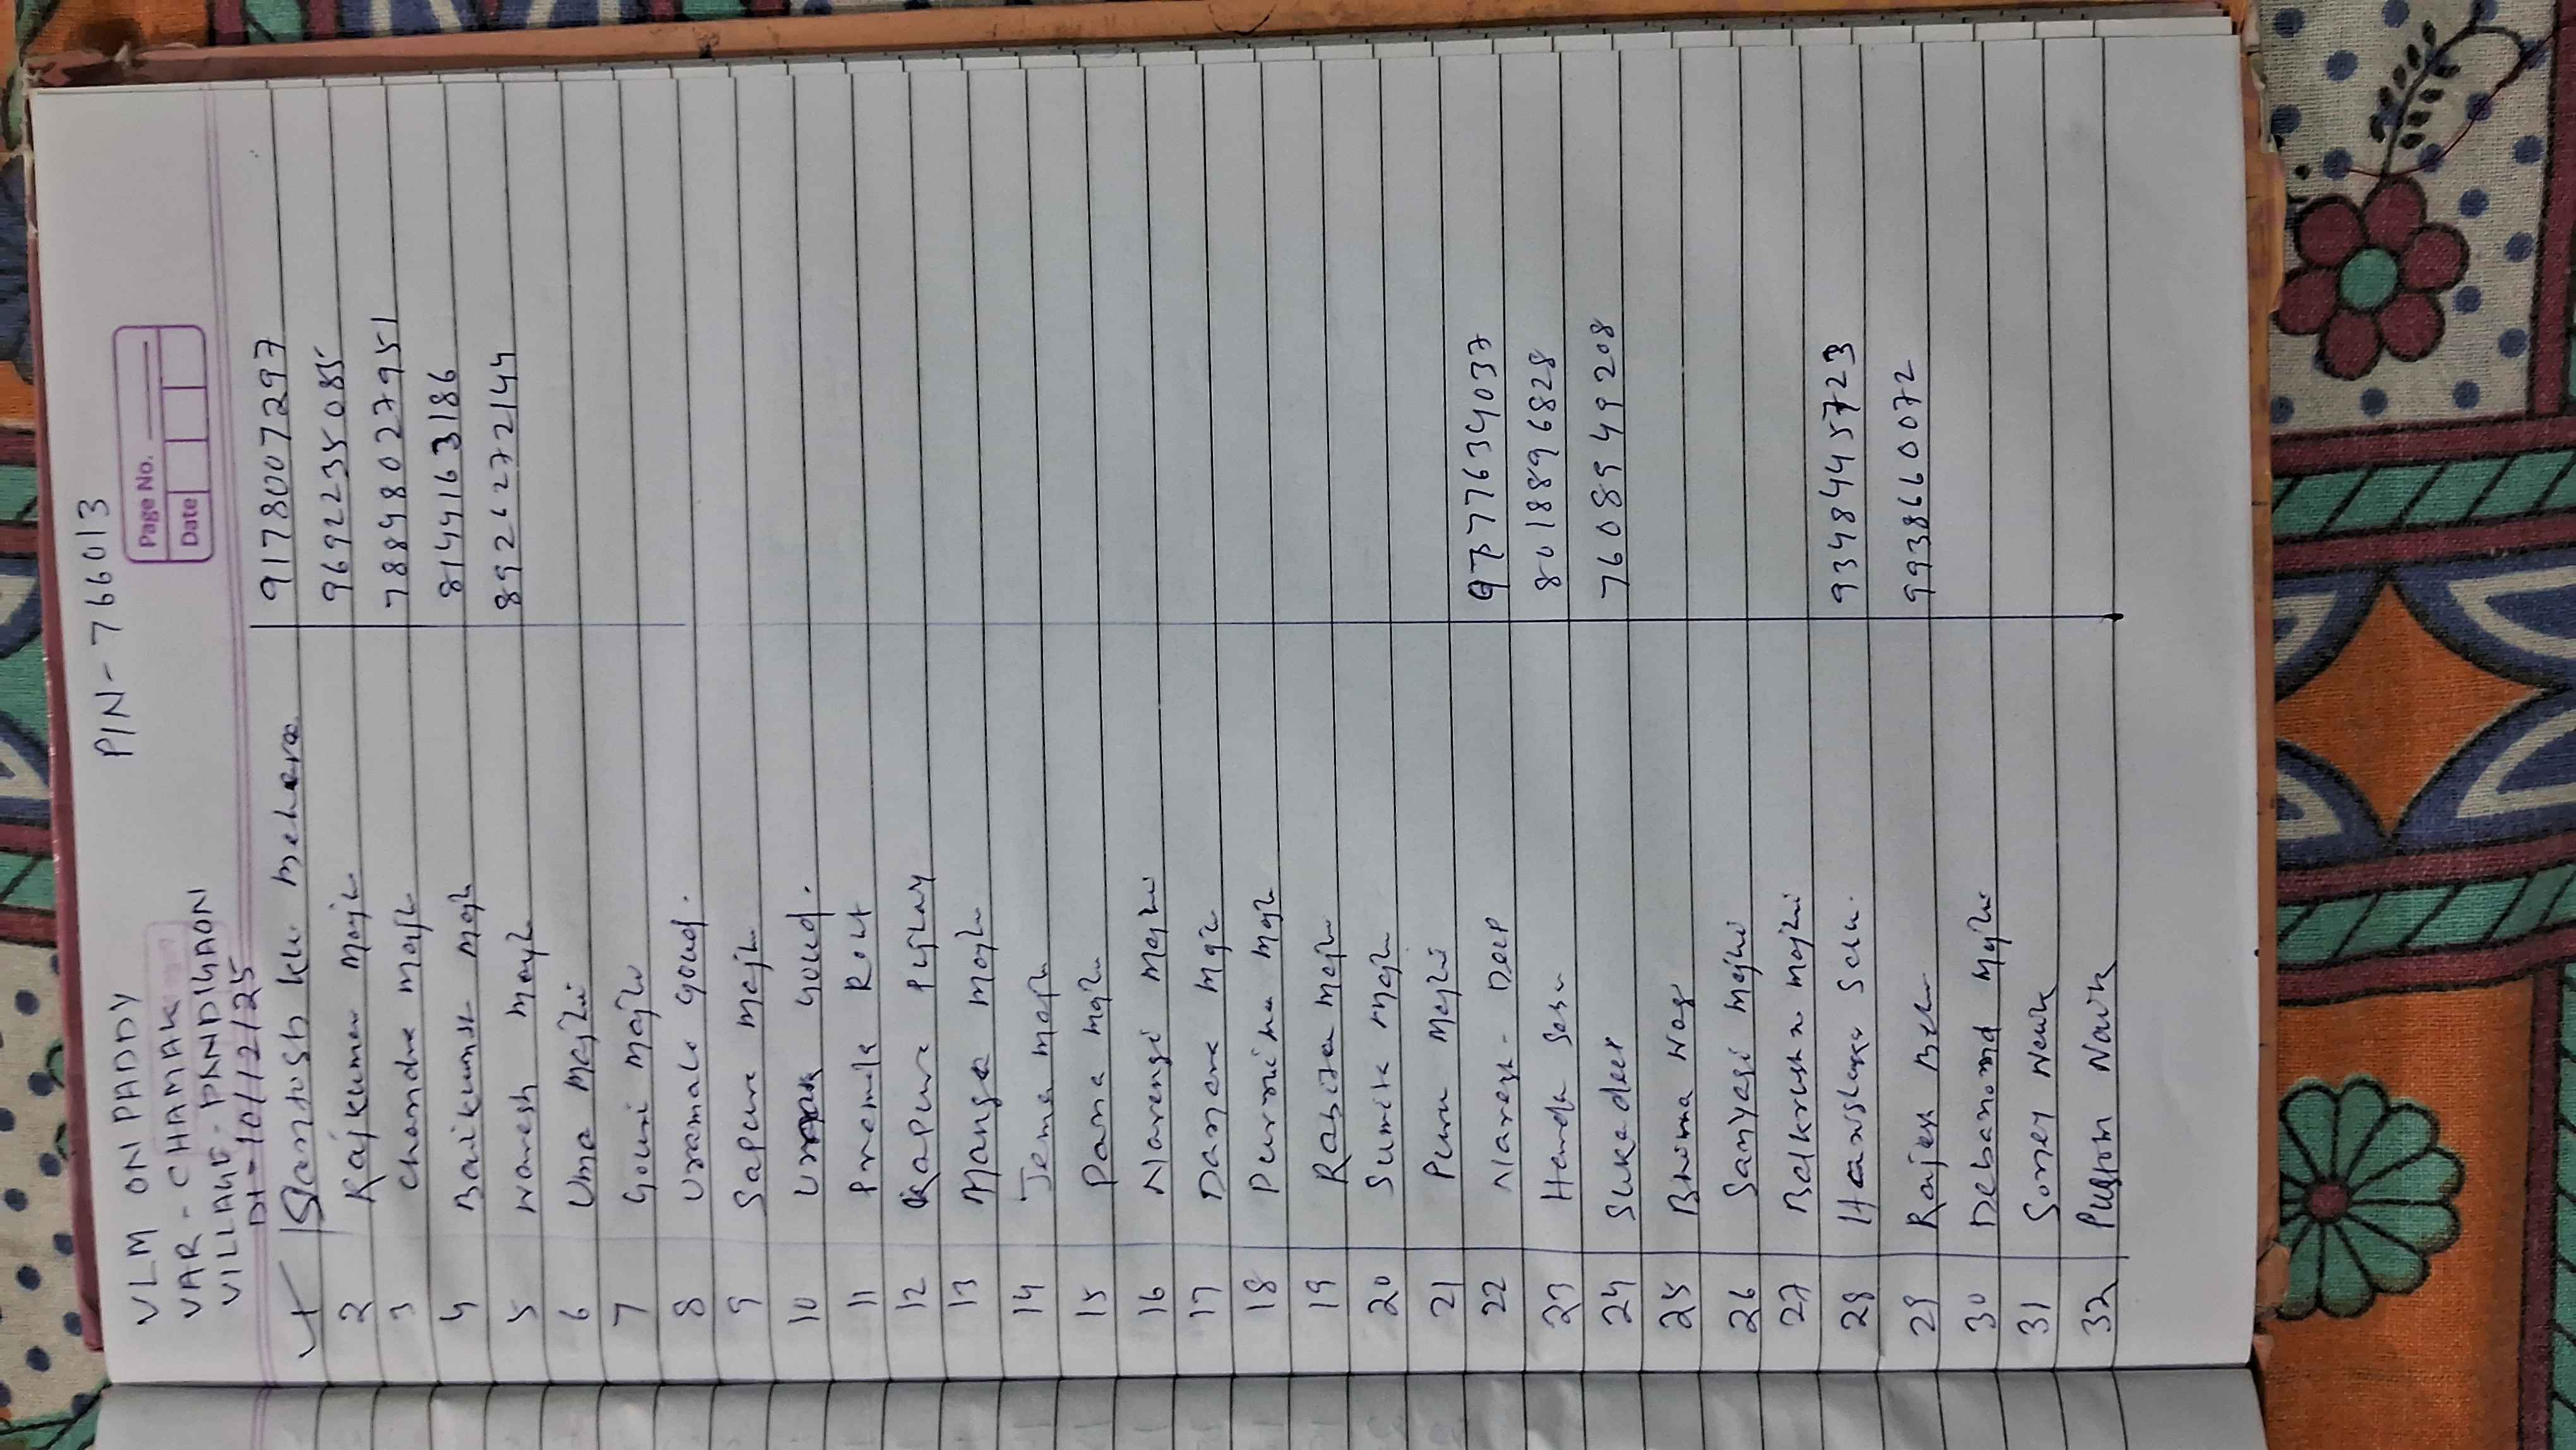 VLM ON PADDY PIN-766013
VAR - CHAMAK
VILLAGE - PANDIGAON
Dt - 10/12/25
Page No.
Date
Santosh ku Mehera 9178007297
2 Rajkumar Majhi 9692235085
3 Chandra Majhi 78848027951
4 Baikunth Majhi 8144163186
5 Naresh Majhi 8926272144
6 Uma Majhi
7 Gouri Majhi
8 Goud.
9 Sapura Majhi
10 Goud.
11 Premila Rout
12 Kapura Pujhary
13 Manga Majhi
14 Jema Majhi
15 Pana Majhi
16 Narengi Majhi
17 Damara Majhi
18 Purnima Majhi
19 Rabita Majhi
20 Sumita Majhi
21 Puru Majhi
22 Naresh - Deep 9777634037
23 8018896828
24 Sukadeep 7608949208
25 Bhima Nag
26 Sanyasi Majhi
27 Balkrushna Majhi
28 9348445723
29 Rajesh 9938660072
30 Debanand Majhi
31 Naik
32 Naik